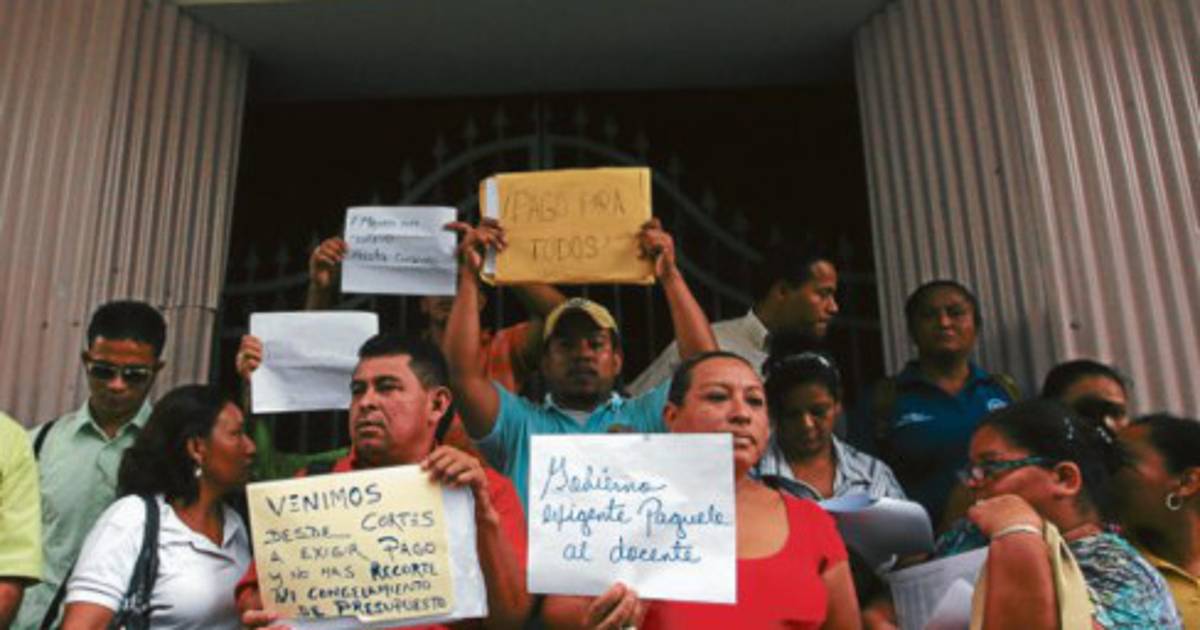 ¡PAGO PARA
TODOS!
VENIMOS
DESDE CORTÉS
A EXIGIR PAGO
Y NO MAS RECORTE
NI CONGELAMIENTO
DE PRESUPUESTO
Gobierno
exigente Paguele
al docente